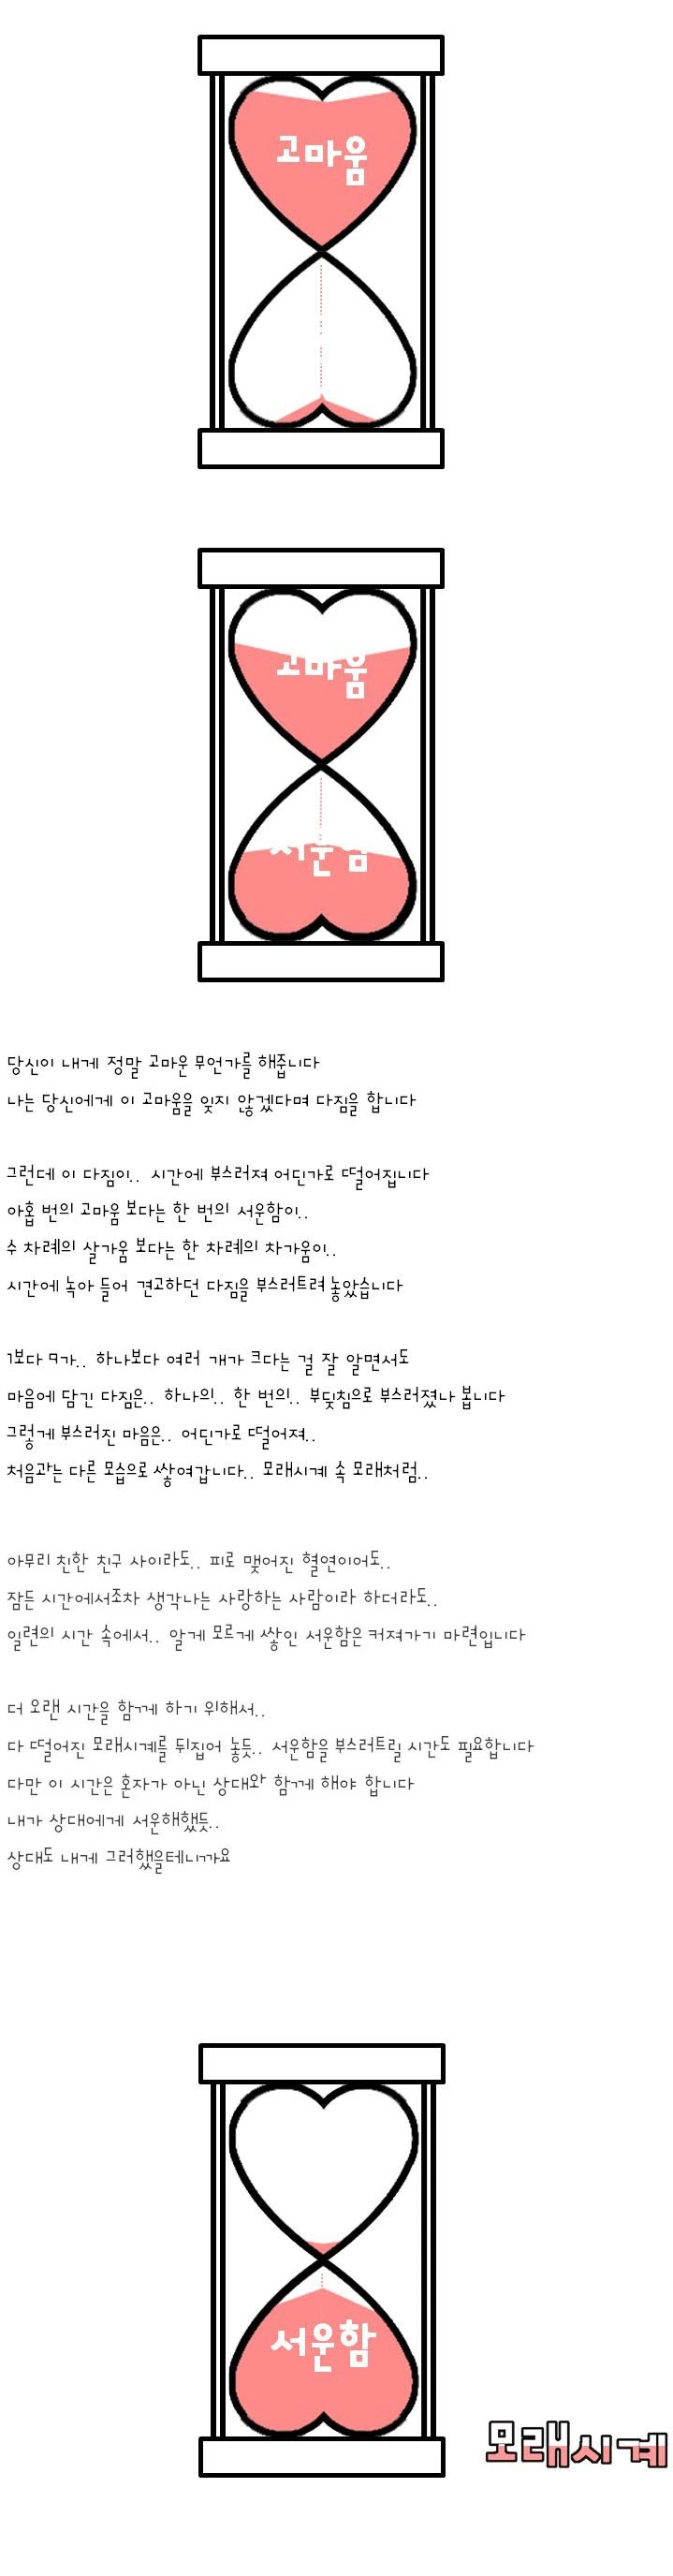 고마움
고마움
서운함
당신이 내게 정말 고마운 무언가를 해줍니다
나는 당신에게 이 고마움을 잊지 않겠다며 다짐을 합니다
그런데 이 다짐이.. 시간에 부스러져 어딘가로 떨어집니다
아홉 번의 고마움 보다는 한 번의 서운함이..
수 차례의 살가움 보다는 한 차례의 차가움이..
시간에 녹아 들어 견고하던 다짐을 부스러트려 놓았습니다
1보다 9가.. 하나보다 여러 개가 크다는 걸 잘 알면서도
마음에 담긴 다짐은.. 하나의.. 한 번의.. 부딪침으로 부스러졌나 봅니다
그렇게 부스러진 마음은.. 어딘가로 떨어져..
처음과는 다른 모습으로 쌓여갑니다.. 모래시계 속 모래처럼..
아무리 친한 친구 사이라도.. 피로 맺어진 혈연이어도..
잠든 시간에서조차 생각나는 사랑하는 사람이라 하더라도..
일련의 시간 속에서.. 알게 모르게 쌓인 서운함은 커져가기 마련입니다
더 오랜 시간을 함께 하기 위해서..
다 떨어진 모래시계를 뒤집어 놓듯.. 서운함을 부스러트릴 시간도 필요합니다
다만 이 시간은 혼자가 아닌 상대와 함께 해야 합니다
내가 상대에게 서운해했듯..
상대도 내게 그러했을테니까요
서운함
모래시계